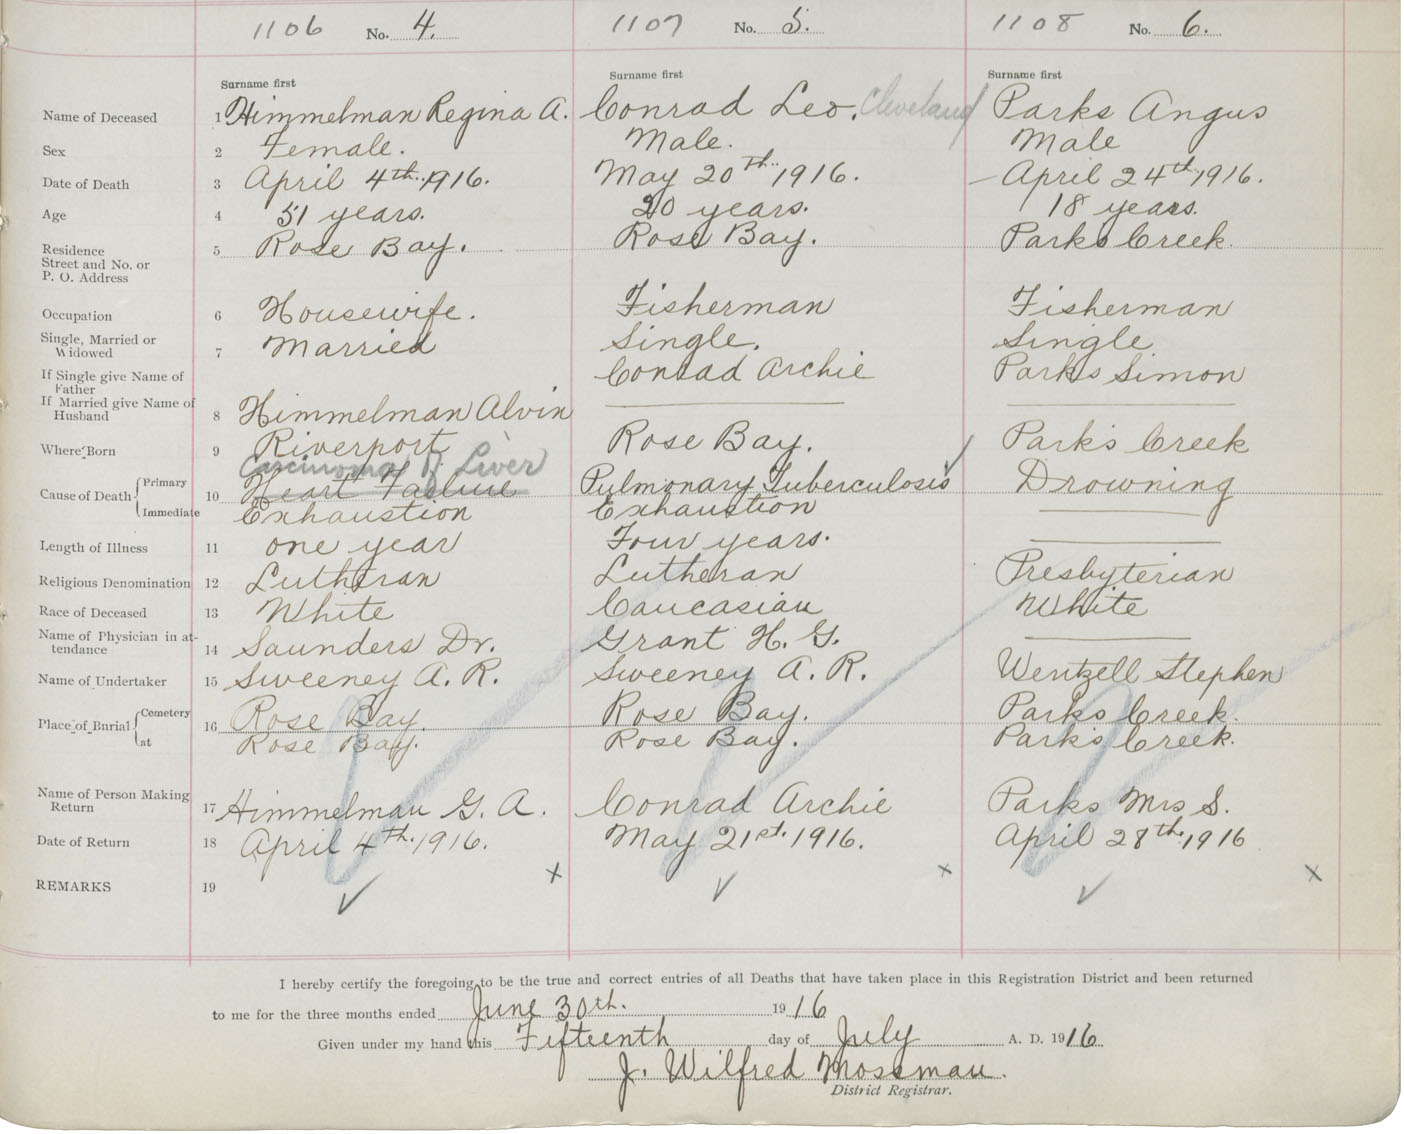 1106 No. 4. 1107 No. 5. 1108 No. 6.
Surname first Surname first Surname first
Name of Deceased 1 Himmelman Regina A. Conrad Leo. Cleveland Parks Angus
Sex 2 Female. Male. Male
Date of Death 3 April 4th. 1916. May 20th. 1916. April 24th 1916.
Age 4 51 years. 20 years. 18 years.
Residence 5 Rose Bay. Rose Bay. Parks Creek.
Street and No. or
P. O. Address
Occupation 6 Housewife. Fisherman Fisherman
Single, Married or
Widowed 7 Married Single. Single
If Single give Name of
Father Conrad Archie Parks Simon
If Married give Name of
Husband 8 Himmelman Alvin
Where Born 9 Riverport Rose Bay. Park's Creek
Carcinoma of Liver
Cause of Death Primary 10 Heart Failure Pulmonary Tuberculosis Drowning
Immediate Exhaustion Exhaustion
Length of Illness 11 one year Four years.
Religious Denomination 12 Lutheran Lutheran Presbyterian
Race of Deceased 13 White Caucasian White
Name of Physician in at-
tendance 14 Saunders Dr. Grant H. G.
Name of Undertaker 15 Sweeney A. R. Sweeney A. R. Wentzell Stephen
Place of Burial Cemetery 16 Rose Bay. Rose Bay. Parks Creek.
at Rose Bay. Rose Bay. Park's Creek.
Name of Person Making
Return 17 Himmelman G. A. Conrad Archie Parks Mrs S.
Date of Return 18 April 4th. 1916. May 21st. 1916. April 28th. 1916
REMARKS 19
I hereby certify the foregoing to be the true and correct entries of all Deaths that have taken place in this Registration District and been returned
to me for the three months ended June 30th. 1916
Given under my hand this Fifteenth day of July A. D. 1916
J. Wilfred Mossman.
District Registrar.